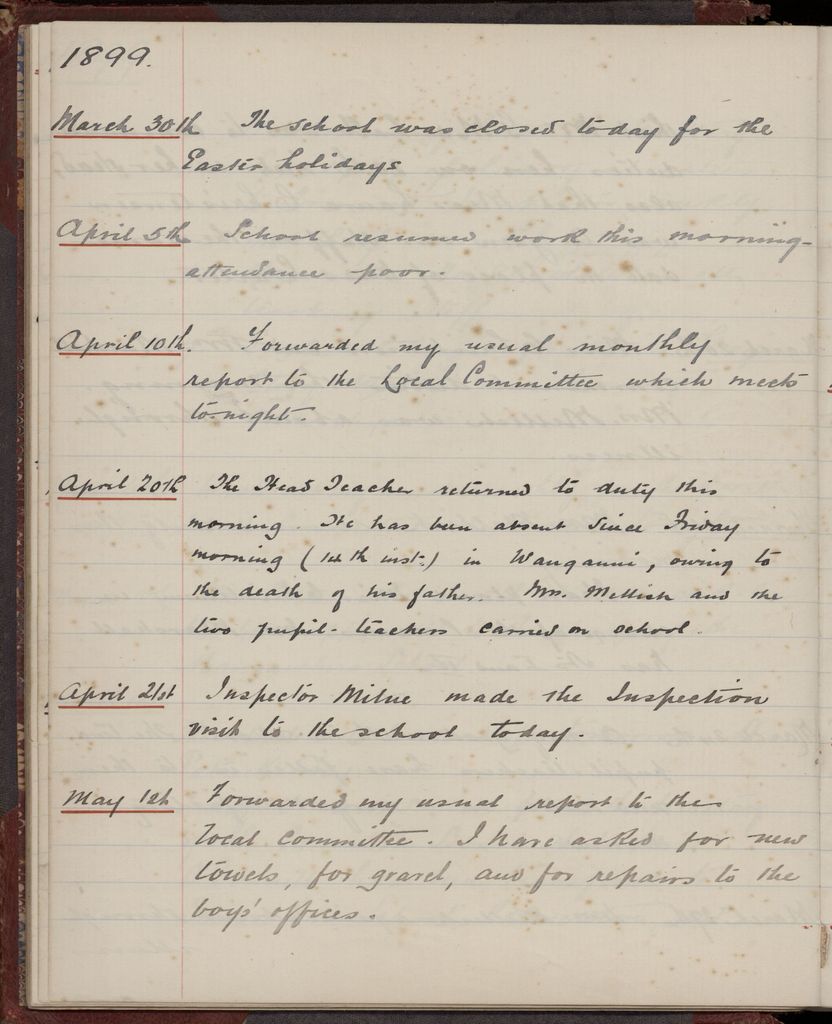 1899.
March 30th The school was closed today for the
Easter holidays
April 5th School resumed work this morning-
attendance poor.
April 10th. Forwarded my usual monthly
report to the Local Committee which meets
to-night.
April 20th The Head Teacher returned to duty this
morning. He has been absent since Friday
morning (14th inst.) in Wanganui, owing to
the death of his father. Mrs. Mellish and the
two pupil-teachers carried on school.
April 21st Inspector Milne made the Inspection
visit to the school today.
May 1st Forwarded my usual report to the
local committee. I have asked for new
towels, for gravel, and for repairs to the
boys' offices.